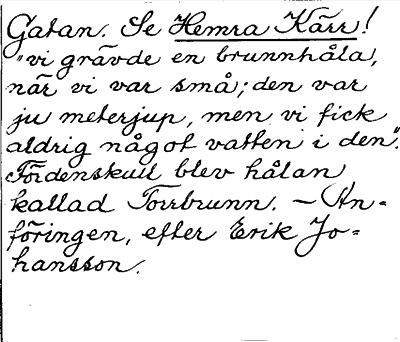 Gatan. Se Hemra Kärr!
"vi grävde en brunnhåla,
när vi var små; den var
ju meterjup, men vi fick
aldrig något vatten i den".
Fördenskull blev hålan
kallad Torrbrunn. - An-
föringen, efter Erik Jo-
hansson.